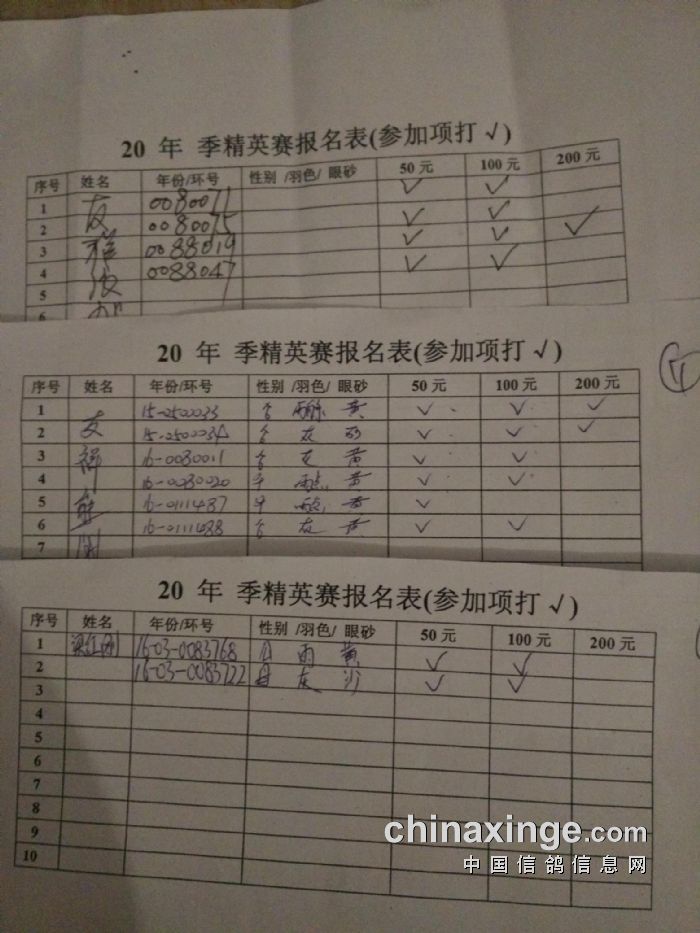 20 年 季精英赛报名表(参加项打 √)
序号 姓名 年份/环号 性别 /羽色/ 眼砂 50 元 100 元 200 元
1 友 0080071 √ √
2 0080075 √ √
3 0088019 √ √ √
4 0088047 √ √
5
6
20 年 季精英赛报名表(参加项打 √)
序号 姓名 年份/环号 性别 /羽色/ 眼砂 50 元 100 元 200 元
1 15-2500033 黄 √ √ √
2 友 15-2500034 灰 砂 √ √ √
3 16-0080011 灰 黄 √ √
4 16-0080020 黄 √ √
5 16-0111487 黄 √
6 16-0111488 灰 黄 √ √
7
20 年 季精英赛报名表(参加项打 √)
序号 姓名 年份/环号 性别 /羽色/ 眼砂 50 元 100 元 200 元
1 16-03-0083768 雨 黄 √ √
2 16-03-0083722 灰 沙 √ √
3
4
5
6
7
8
9
10
chinaxinge.com
中国信鸽信息网